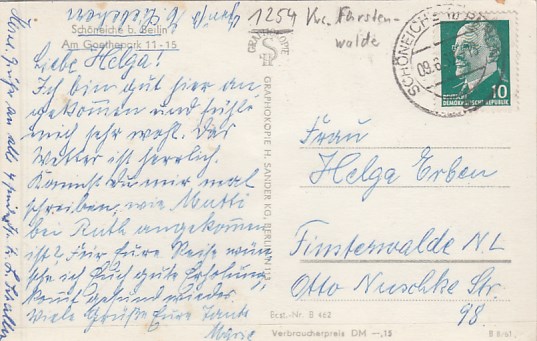 Schöneiche b. Berlin
Am Goethepark 11-15
Liebe Helga!
Ich bin gut hier an
gekommen und fühle
mich sehr wohl. Das
Wetter ist herrlich.
Kannst Du mir mal
schreiben, wie Mutti
bei Ruth angekommen
ist? Für Eure Reise wün
sche ich Euch gute Erholung,
kommt gesund wieder.
Viele Grüße Eure Tante
Marie
GRAPHOKOPIE
GRAPHOKOPIE H. SANDER KG, BERLIN
1254 Kr. Fürsten-
walde
SCHÖNEICHE
DEUTSCHE
DEMOKRATISCHE REPUBLIK
10
Frau
Helga Erben
Finsterwalde N.L
Otto Nuschke Str.
98.
Best.-Nr. B 462
Verbraucherpreis DM -,15
B 8/61